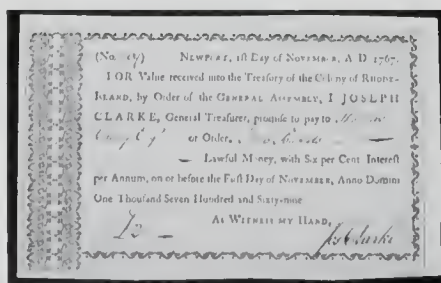 (No. NEWPORT, 1st Day of NOVEMBER, A D 1767.
FOR Value received into the Treasury of the Colony of RHODE-
ISLAND, by Order of the GENERAL ASSEMBLY, I JOSEPH
CLARKE, General Treasurer, promise to pay to
or Order,
Lawful Money, with Six per Cent Interest
per Annum, on or before the First Day of NOVEMBER, Anno Domini
One Thousand Seven Hundred and Sixty-nine
As WITNESS MY HAND,
Jos Clarke